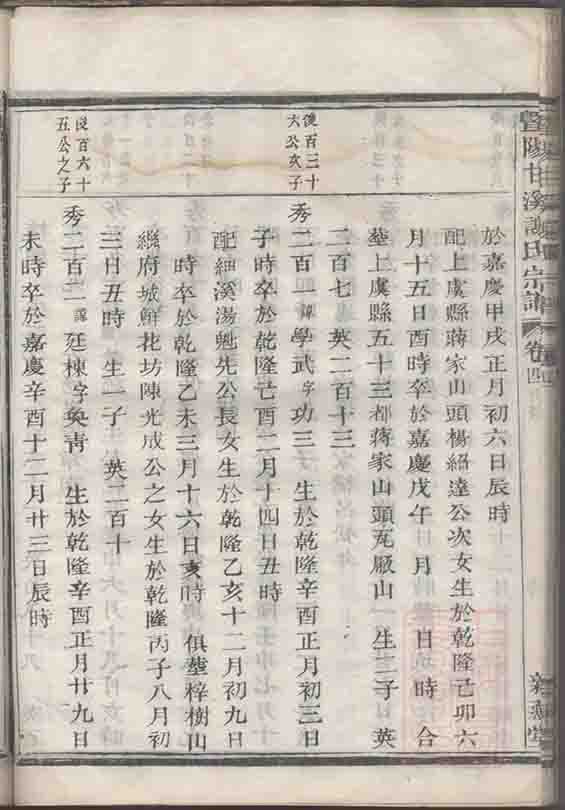 暨陽甘溪謝氏宗譜 卷四
於嘉慶甲戌正月初六日辰時
配上虞縣蔣家山頭楊紹達公次女生於乾隆己卯六
月十五日酉時卒於嘉慶戊午 月 日 時 合
塟上虞縣五十三都蒋家山頭瓦厰山 生二子 英
二百七 英二百十三
俊百三十
六公次子
秀二百一 諱學武字功三 生於乾隆辛酉正月初三日
子時卒於乾隆己酉二月十四日丑時
配細溪湯魁先公長女生於乾隆乙亥十二月初九日
時卒於乾隆乙未三月十六日亥時 俱塟梓樹山
繼府城鮮花坊陳光成公之女生於乾隆丙子八月初
三日丑時 生一子 英二百十
俊百六十
五公之子
秀二百二 諱廷棟字奐靑 生於乾隆辛酉正月廿九日
未時卒於嘉慶辛酉十二月廿三日辰時